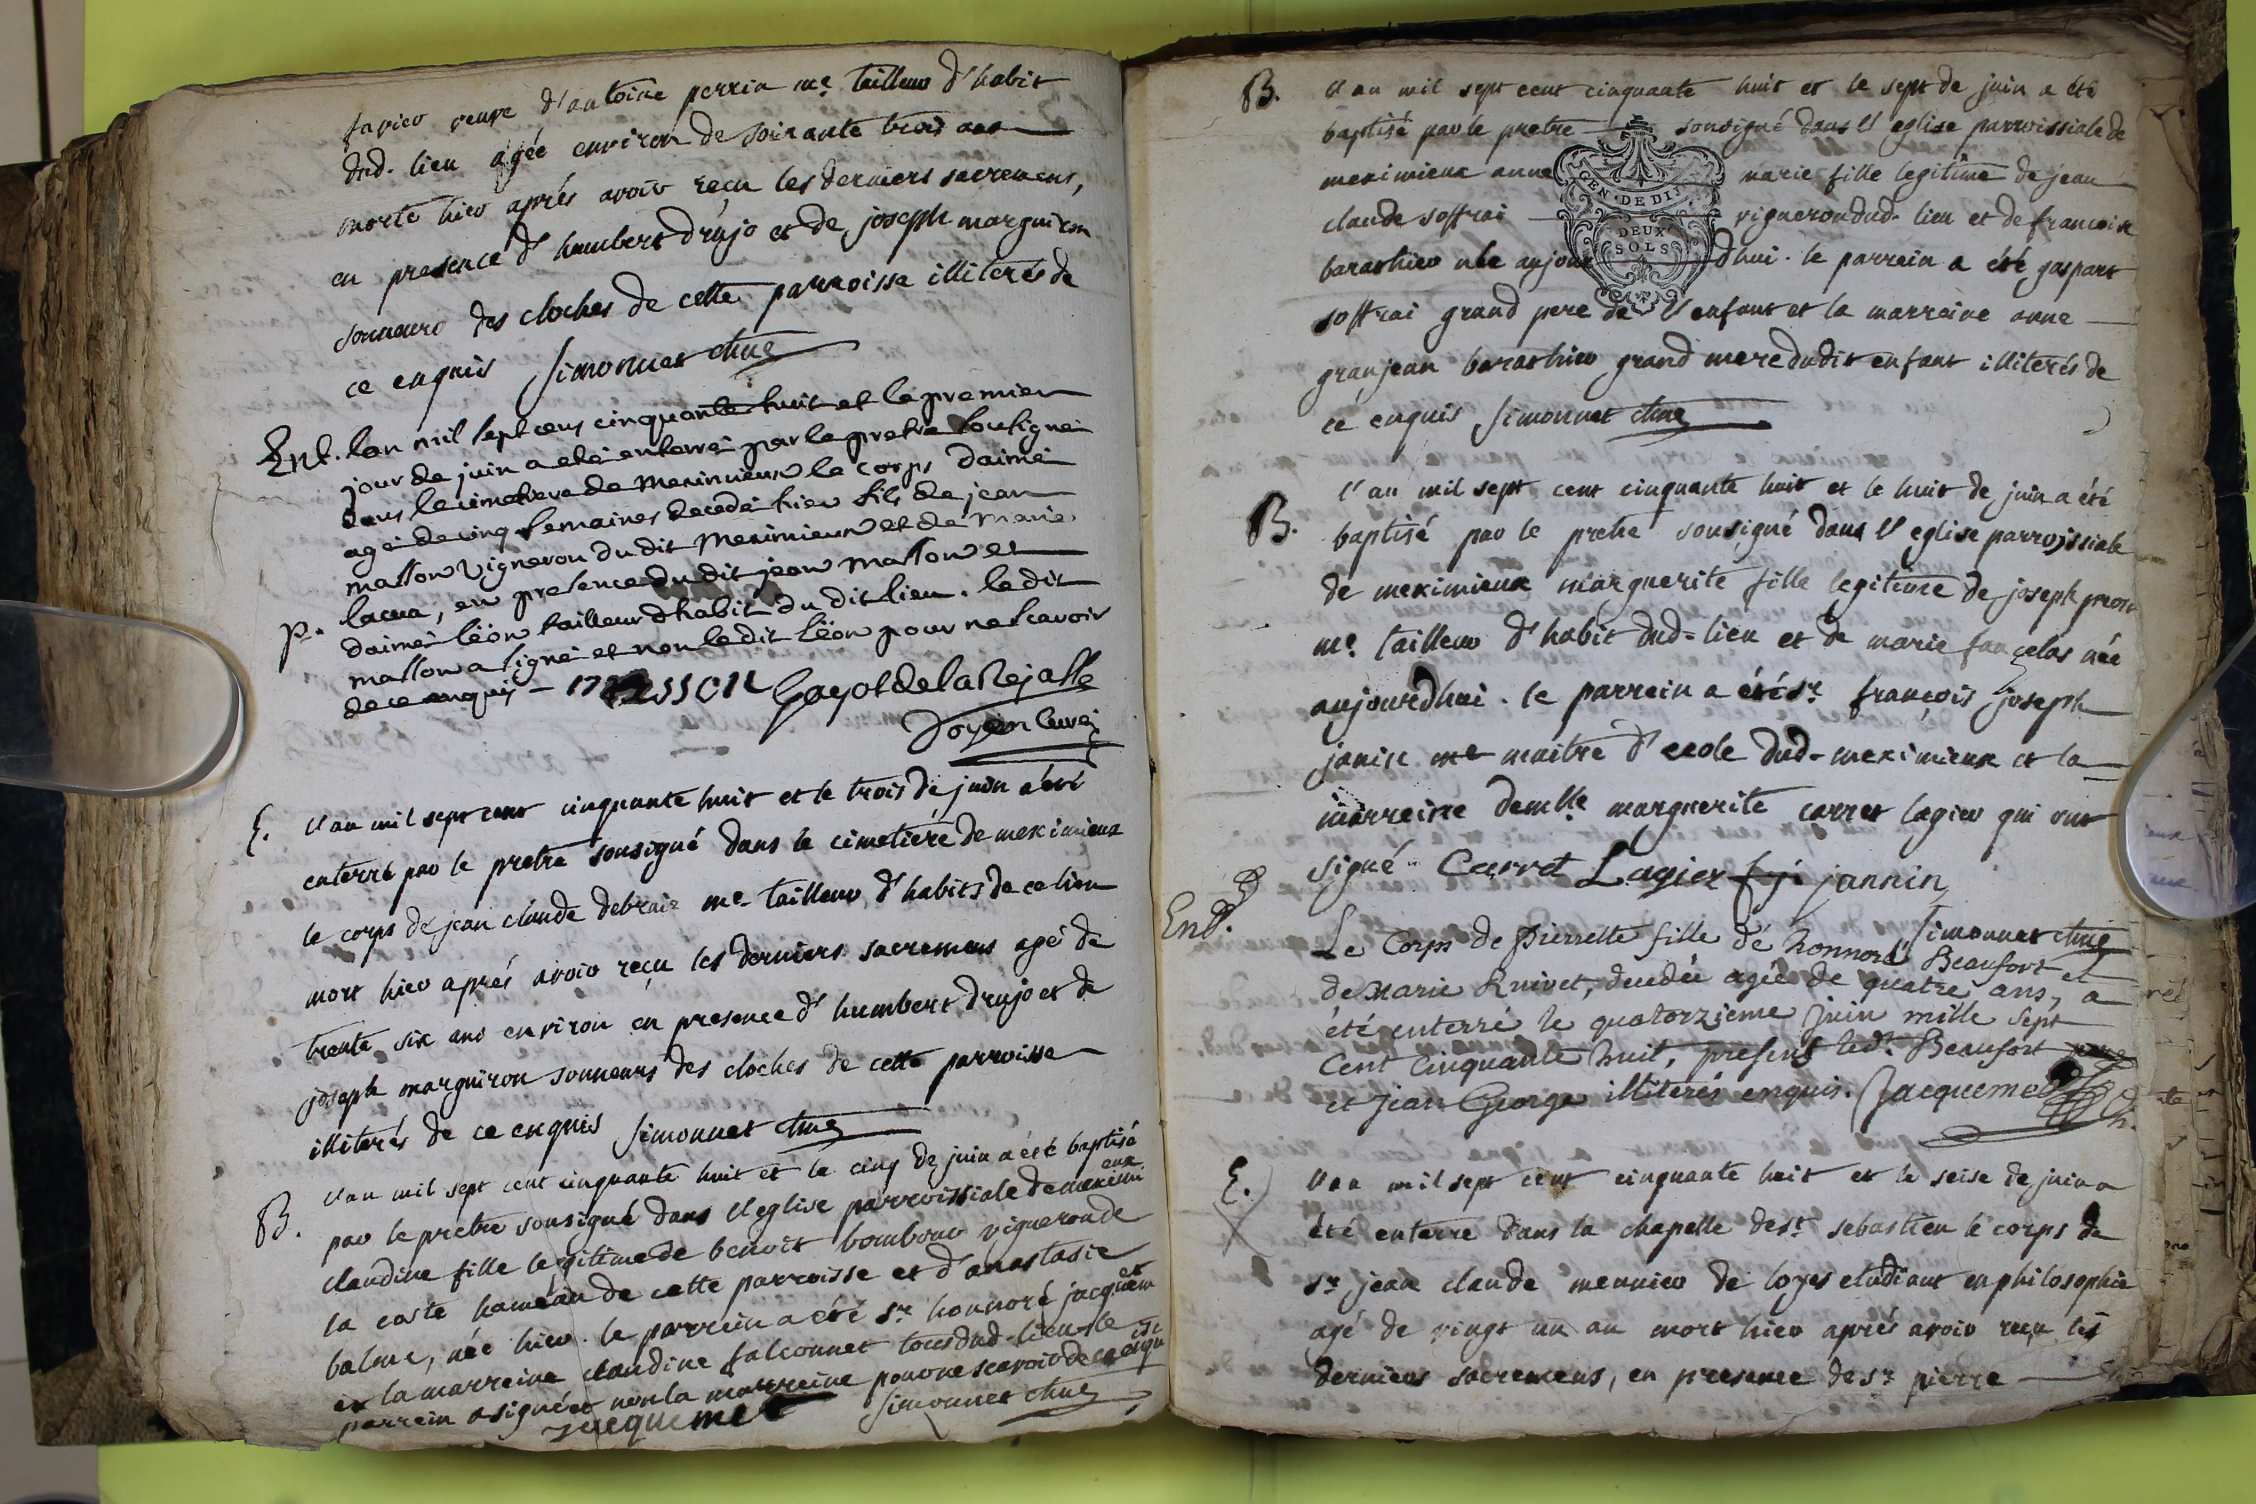 favier veuve d'antoine perrin me. tailleur d'habit
dud. lieu agée environ de soixante trois ans
morte hier aprés avoir reçu les derniers sacremens,
en presence d'humbert drujo et de joseph marguiron
sonneurs des cloches de cette parroisse illiterés de
ce enquis Simonnet
Ent. lan mil sept cens cinquante huit et le premier
jour de juin a eté enterré par le pretre soussigné
dans le cimetiere de meximieux le corps daimé
agé de cinq semaines decedé hier fils de jean
masson vigneron du dit meximieux et de marie
lacua, en presence du dit jean masson et
P. daimé lëon tailleur dhabit du dit lieu. le dit
masson a signé et non le dit lëon pour ne scavoir
de ce enquis - masson Gayot de la Rejasse
Doyen Curé
E. l'an mil sept cent cinquante huit et le trois de juin a été
enterré par le pretre sousigné dans le cimetière de meximieux
le corps de jean claude debrais me. tailleur d'habits de ce lieu
mort hier aprés avoir reçu les derniers sacremens agé de
trente six ans environ en presence d'humbert drujo et de
joseph marguiron sonneurs des cloches de cette parroisse
illiterés de ce enquis Simonnet
B. l'an mil sept cent cinquante huit et le cinq de juin a été baptisé
par le pretre sousigné dans l'eglise parroissiale de meximieux
claudine fille legitime de benoit vigneron de
la coste haméau de cette parroisse et d'anastasie
balme, née hier. le parrein a été sr. honnoré jacquemet
et la marreine claudine falconnet tous dud-lieu le
parrein a signé et non la marreine pour ne scavoir de ce enquis
jacquemet Simonnet
B. l'an mil sept cent cinquante huit et le sept de juin a été
baptisé par le pretre sousigné dans l'eglise parroissiale de
meximieux anne marie fille legitime de jean
claude soffrai vigneron dud. lieu et de francoise
née aujour d'hui. le parrein a été gaspart
soffrai grand pere de l'enfant et la marreine anne
granjean grand mere dudit enfant illiterés de
ce enquis Simonnet
GEN · DE DIJ
DEUX
SOLS
B. l'an mil sept cent cinquante huit et le huit de juin a été
baptisé par le pretre sousigné dans l'eglise parroissiale
de meximieux marguerite fille legitime de joseph
me. tailleur d'habit dud-lieu et de marie née
aujourdhui. le parrein a été sr. françois joseph
janin me maitre d'ecole dud-meximieux et la
marreine demlle. marguerite carret lagier qui ont
signé Carret Lagier f j jannin
Simonnet
Ent. Le Corps de Pierrette fille dé honnoré Beaufort et
de Marie Rnivet, decedée agée de quatre ans, a
été enterré le quatorzieme juin mille sept
Cent Cinquante huit, presens led. Beaufort
et Jean George illiterés enquis. Jacquemet
E. l'an mil sept cent cinquante huit et le seise de juin a
été enterré dans la chapelle de st. sebastien le corps de
sr. jean claude meunier de loyes etudiant en philosophie
agé de vingt un an mort hier aprés avoir reçu les
derniers sacremens, en presence de sr. pierre